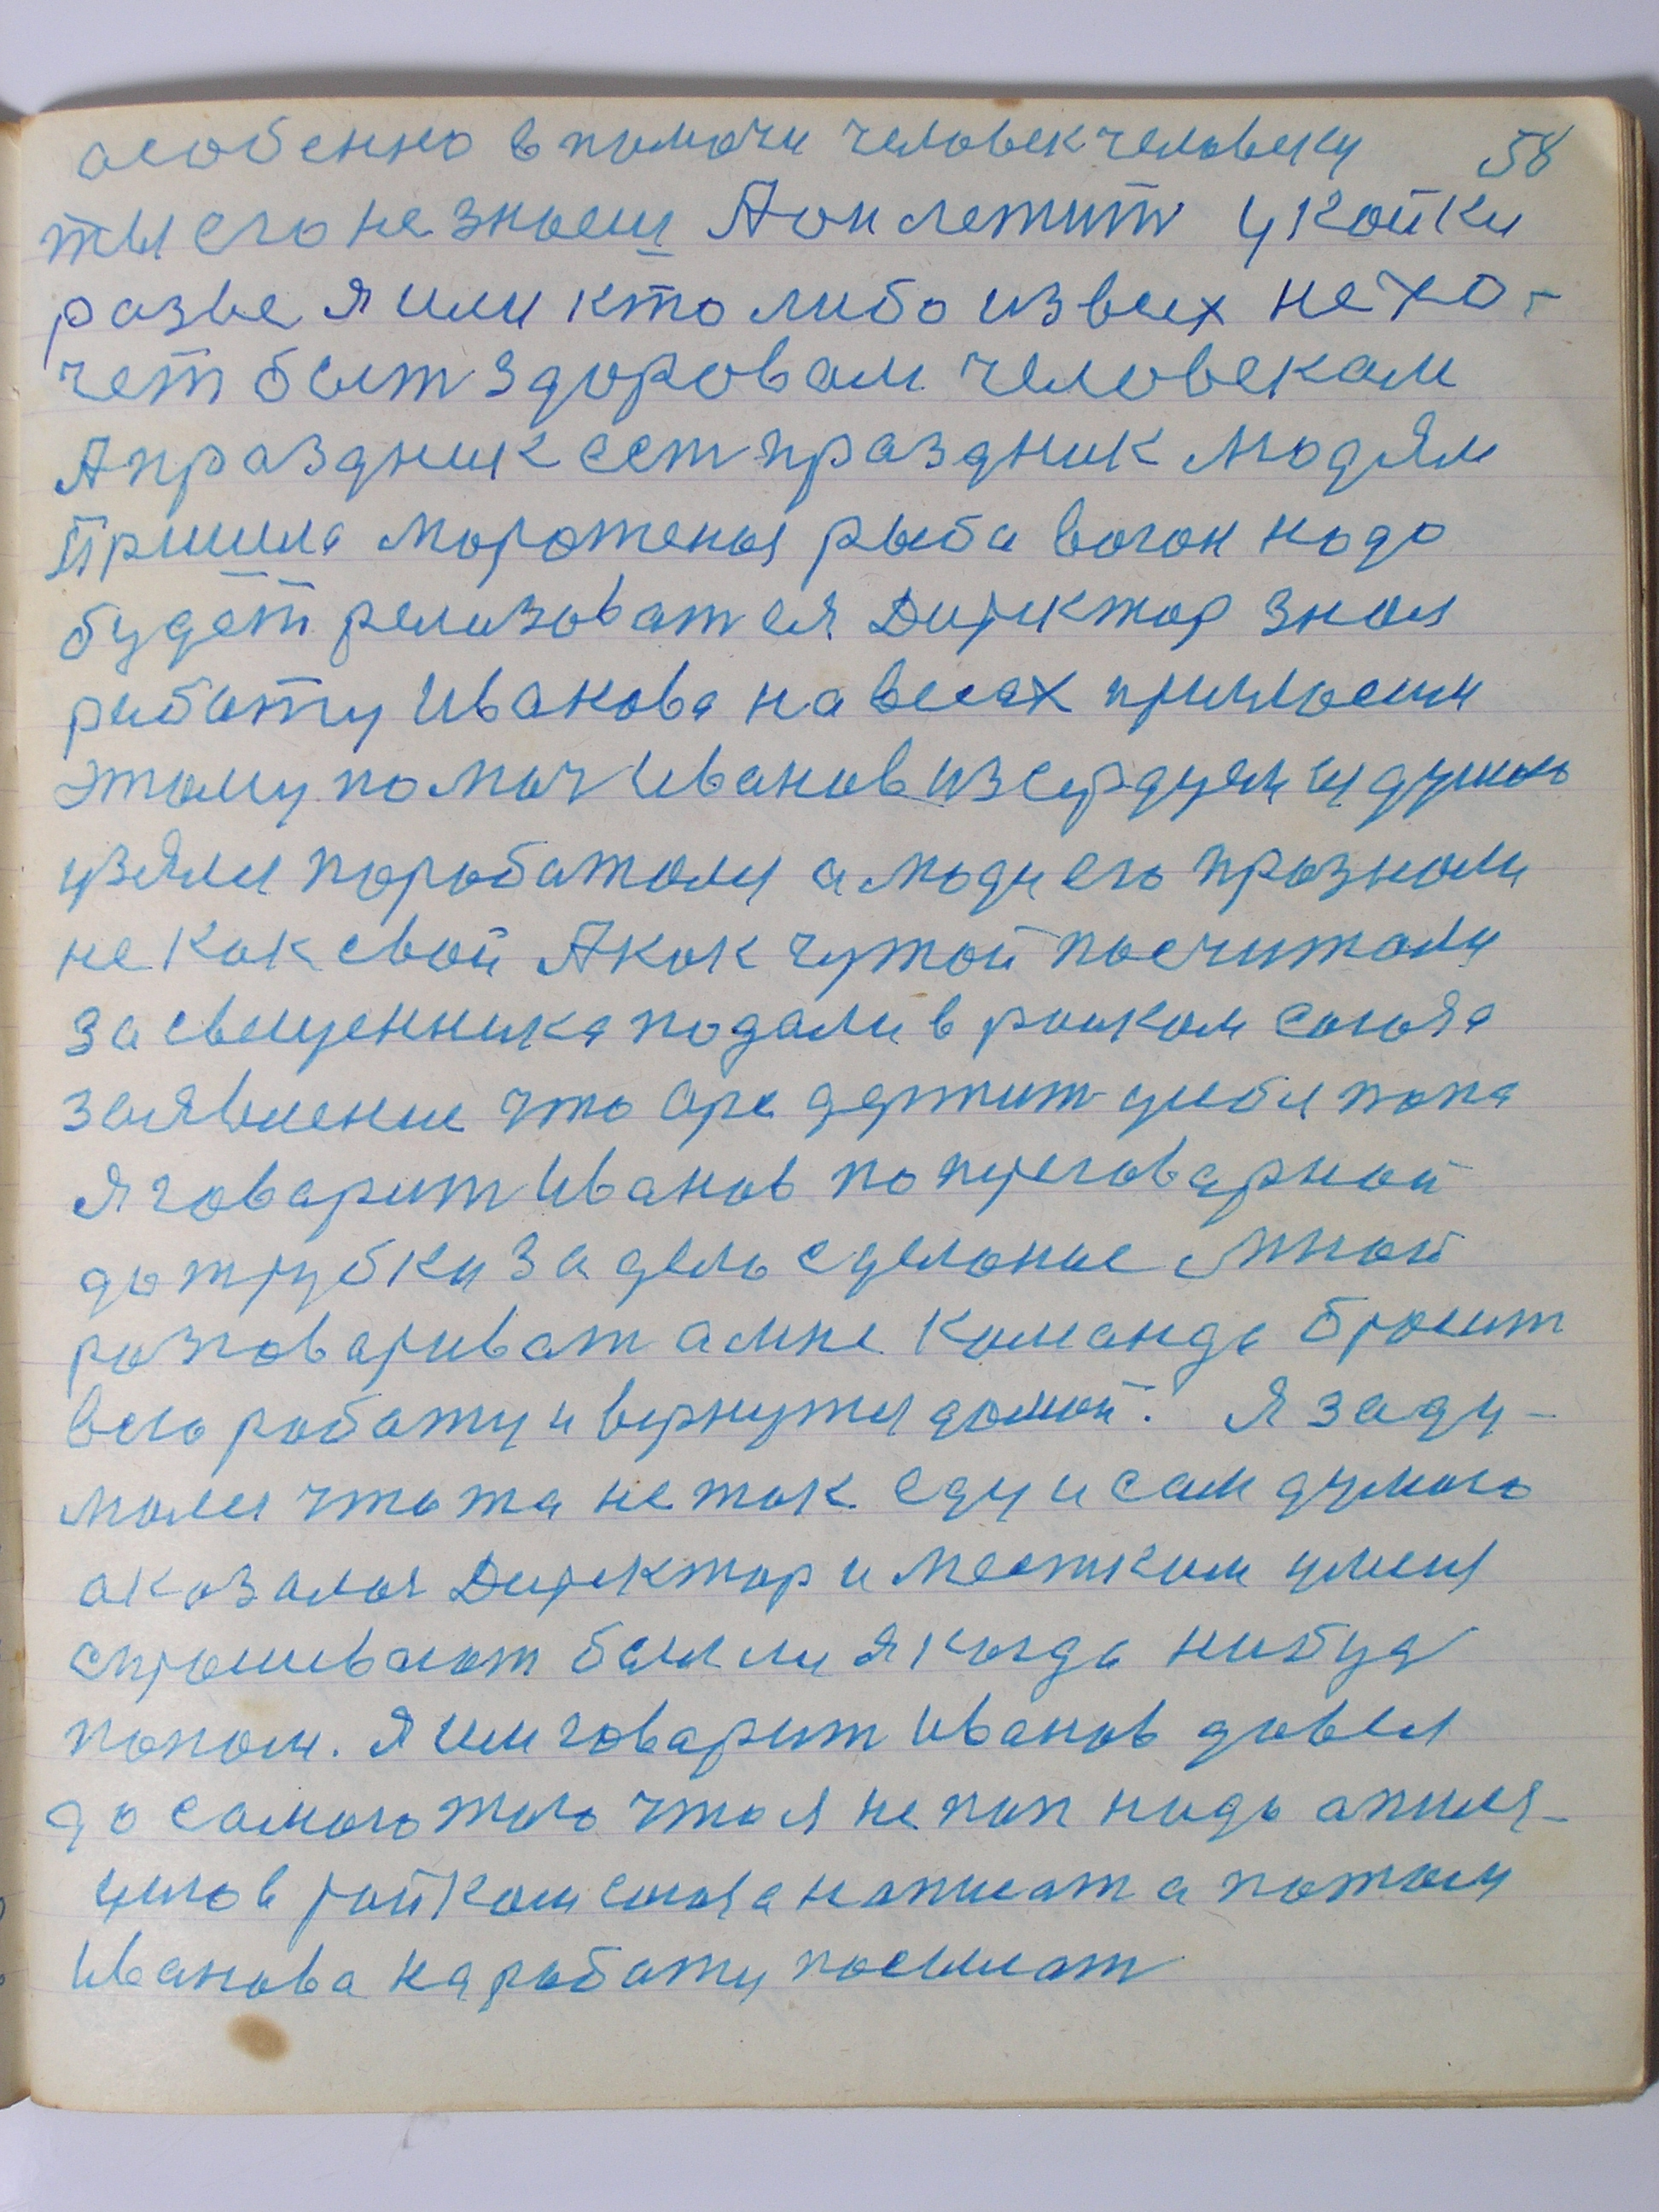 особенно в помочи человек человеку 58
ты его не знаеш А он лежит у койки
разве я или кто либо из всех не хо-
чет быт здоровам человекам
А праздник ест праздник людям
Пришла мороженая рыба вагон надо
будет релизоватся Директор зная
работу Иванова на весах пригласил
этаму помоч Иванов из сердцам и душою
узяли поработали а люди его празнали
не как свой А как чужой посчитали
за свещенника подали в райком союза
заявление что орс держит у себя попа
Я говарит Иванов по переговарной
до трубки за дело сделоные мной
разговариват а мне команда бросит
всю работу и вернутся домой. Я заду-
мался что та не так еду и сам думаю
аказался Директор и местком у меня
спрошивают был ли я когда нибуд
попом. Я им говарит Иванов довел
до самого того что я не поп надо апиля-
цию в райком союза написат а потом
Иванова на работу посылат